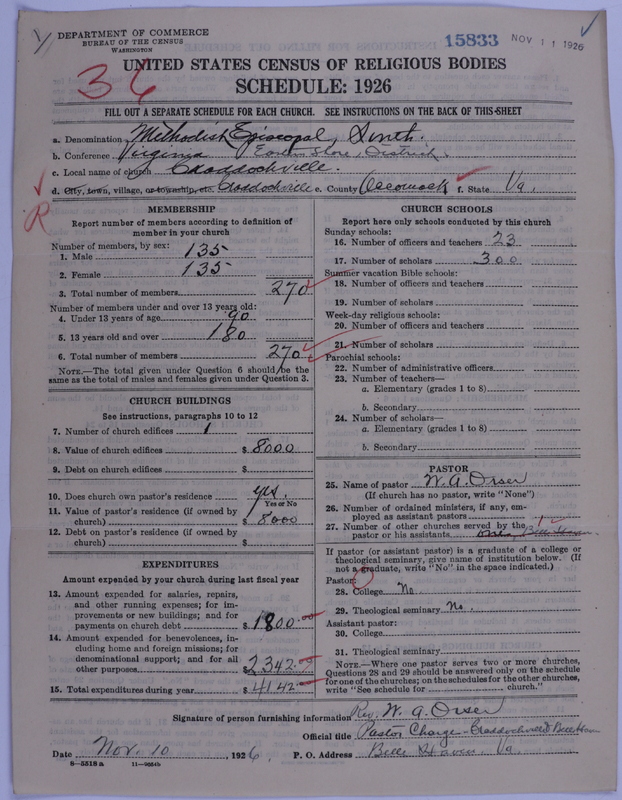 DEPARTMENT OF COMMERCE
BUREAU OF THE CENSUS
WASHINGTON
15833 NOV 11 1926
36
UNITED STATES CENSUS OF RELIGIOUS BODIES
SCHEDULE: 1926
FILL OUT A SEPARATE SCHEDULE FOR EACH CHURCH. SEE INSTRUCTIONS ON THE BACK OF THIS SHEET
a. Denomination Methodist Episcopal, South.
b. Conference Virginia Eastern Shore, District.
c. Local name of church Craddockville.
d. City, town, village, or township, etc. Craddockville e. County Accomack f. State Va.
R
MEMBERSHIP
Report number of members according to definition of member in your church
Number of members, by sex:
1. Male 135
2. Female 135
3. Total number of members 270
Number of members under and over 13 years old:
4. Under 13 years of age 90
5. 13 years old and over 180
6. Total number of members 270
NOTE.—The total given under Question 6 should be the same as the total of males and females given under Question 3.
CHURCH BUILDINGS
See instructions, paragraphs 10 to 12
7. Number of church edifices 1
8. Value of church edifices $ 8000
9. Debt on church edifices $
10. Does church own pastor's residence yes.
Yes or No
11. Value of pastor's residence (if owned by church) $ 8000
12. Debt on pastor's residence (if owned by church) $
EXPENDITURES
Amount expended by your church during last fiscal year
13. Amount expended for salaries, repairs, and other running expenses; for improvements or new buildings; and for payments on church debt $ 1800.00
14. Amount expended for benevolences, including home and foreign missions; for denominational support; and for all other purposes $ 2342
15. Total expenditures during year $ 4142
CHURCH SCHOOLS
Report here only schools conducted by this church
Sunday schools:
16. Number of officers and teachers 23
17. Number of scholars 300
Summer vacation Bible schools:
18. Number of officers and teachers
19. Number of scholars
Week-day religious schools:
20. Number of officers and teachers
21. Number of scholars
Parochial schools:
22. Number of administrative officers
23. Number of teachers—
a. Elementary (grades 1 to 8)
b. Secondary
24. Number of scholars—
a. Elementary (grades 1 to 8)
b. Secondary
PASTOR
25. Name of pastor W. A. Orser
(If church has no pastor, write "None")
26. Number of ordained ministers, if any, employed as assistant pastors
27. Number of other churches served by the pastor or his assistants Belle Haven
1
If pastor (or assistant pastor) is a graduate of a college or theological seminary, give name of institution below. (If not a graduate, write "No" in the space indicated.)
Pastor:
28. College No
29. Theological seminary No.
Assistant pastor:
30. College
31. Theological seminary
NOTE.—Where one pastor serves two or more churches, Questions 28 and 29 should be answered only on the schedule for one of the churches; on the schedules for the other churches, write "See schedule for church."
Signature of person furnishing information Rev. W. A. Orser
Official title Pastor Charge - Craddockville & Belle Haven
Date Nov. 10, 1926. P. O. Address Belle Haven Va.
8—5518 a 11—9054b